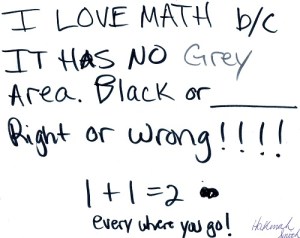 I LOVE MATH b/c
IT HAS NO Grey
Area. Black or ______
Right or Wrong!!!!
1+1=2
every where you go!